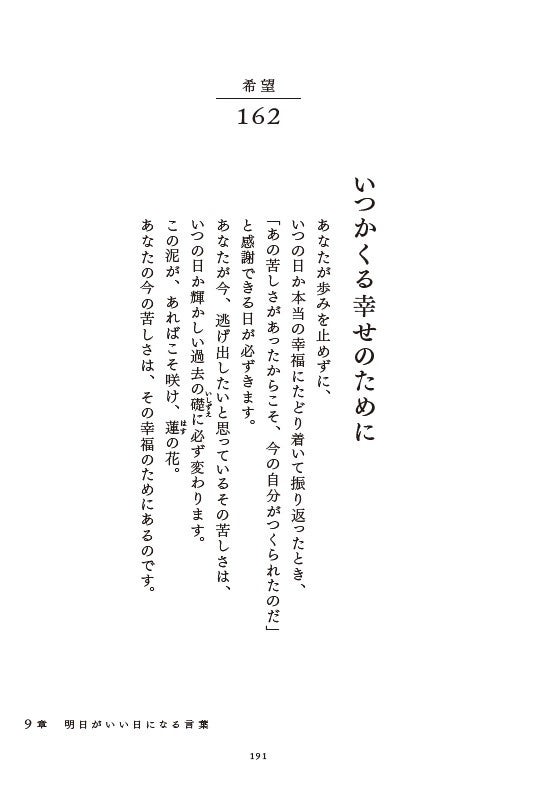 希望
162
いつかくる幸せのために
あなたが歩みを止めずに、
いつの日か本当の幸福にたどり着いて振り返ったとき、
「あの苦しさがあったからこそ、今の自分がつくられたのだ」
と感謝できる日が必ずきます。
あなたが今、逃げ出したいと思っているその苦しさは、
いつの日か輝かしい過去の礎に必ず変わります。
いしずえ
この泥が、あればこそ咲け、蓮の花。
はす
あなたの今の苦しさは、その幸福のためにあるのです。
9章　明日がいい日になる言葉
191